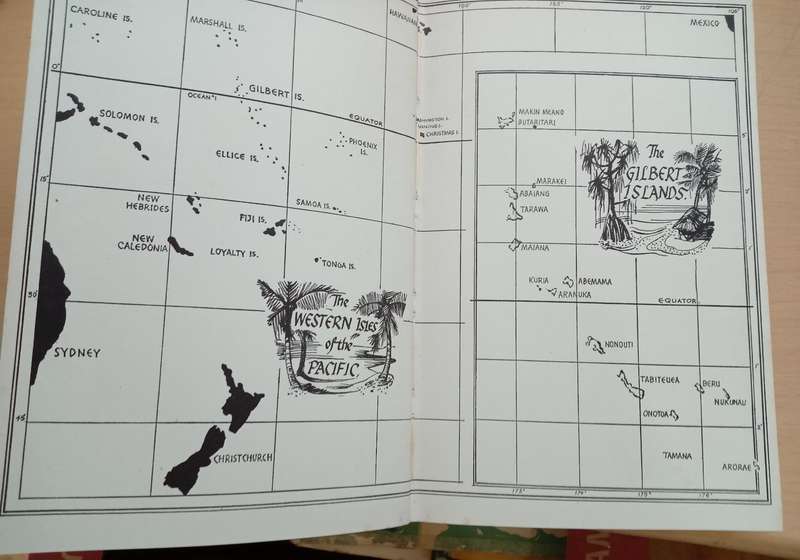 CAROLINE IS.
MARSHALL IS.
HAWAIIAN
MEXICO
0°
GILBERT IS.
OCEAN I
EQUATOR
SOLOMON IS.
ELLICE IS.
PHOENIX
IS.
CHRISTMAS I.
15°
NEW
HEBRIDES
SAMOA IS.
FIJI IS.
NEW
CALEDONIA
LOYALTY IS.
TONGA IS.
30°
The
WESTERN ISLES
of the
PACIFIC
SYDNEY
45
CHRISTCHURCH
MAKIN MEANG
BUTARITARI
The
GILBERT
ISLANDS.
MARAKEI
ABAIANG
TARAWA
MAIANA
KURIA
ABEMAMA
ARANUKA
EQUATOR
NONOUTI
TABITEUEA
BERU
NUKUNAU
ONOTOA
TAMANA
ARORAE
173°
174°
175°
176°